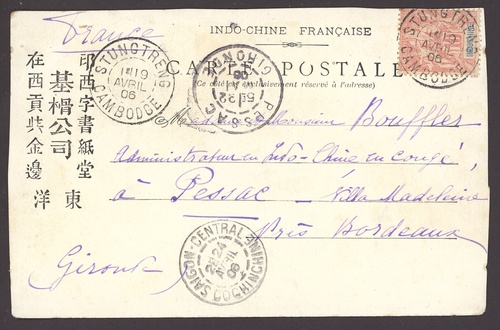 France
INDO-CHINE FRANÇAISE
CARTE POSTALE
(Ce côté est exclusivement réservé à l'adresse)
STUNGTRENG
19
AVRIL
06
CAMBODGE
STUNGTRENG
19
AVRIL
06
CAMBODGE
印西字書紙堂
基楫公司
在西貢柴金邊
東
洋
Monsieur Bouffler
Administrateur en Indo-Chine en congé,
à Pessac Villa Madeleine
Près Bordeaux
Gironde
SAIGON-CENTRAL
24
AVRIL
06
COCHINCHINE